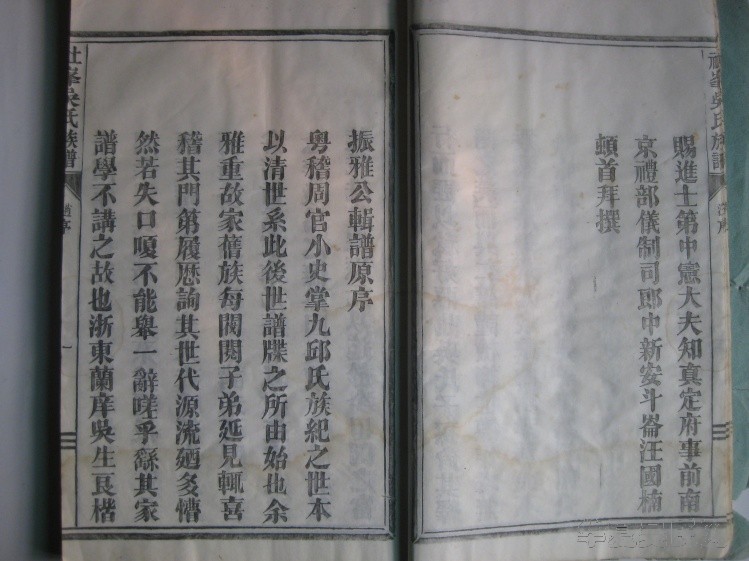 賜進士第中憲大夫知真定府事前南
京禮部儀制司郎中新安斗崙汪國楠
頓首拜撰
振雅公輯譜原序
粵稽周官小史掌九邱氏族紀之世本
以清世系此後世譜牒之所由始也余
雅重故家舊族每閥閱子弟延見輒喜
稽其門第履厯詢其世代源流廼多懵
然若失口嗄不能舉一辭嗟乎繇其家
譜學不講之故也浙東蘭庠吳生良楷
峯吳氏族譜
峯吳氏族譜